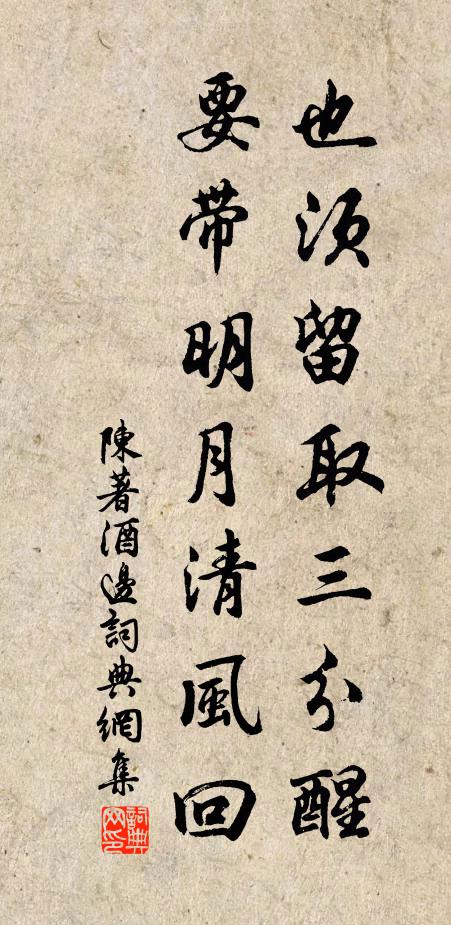 也須留取三分醒
要帶明月清風回
陳著酒邊詞典網集
詞典網印